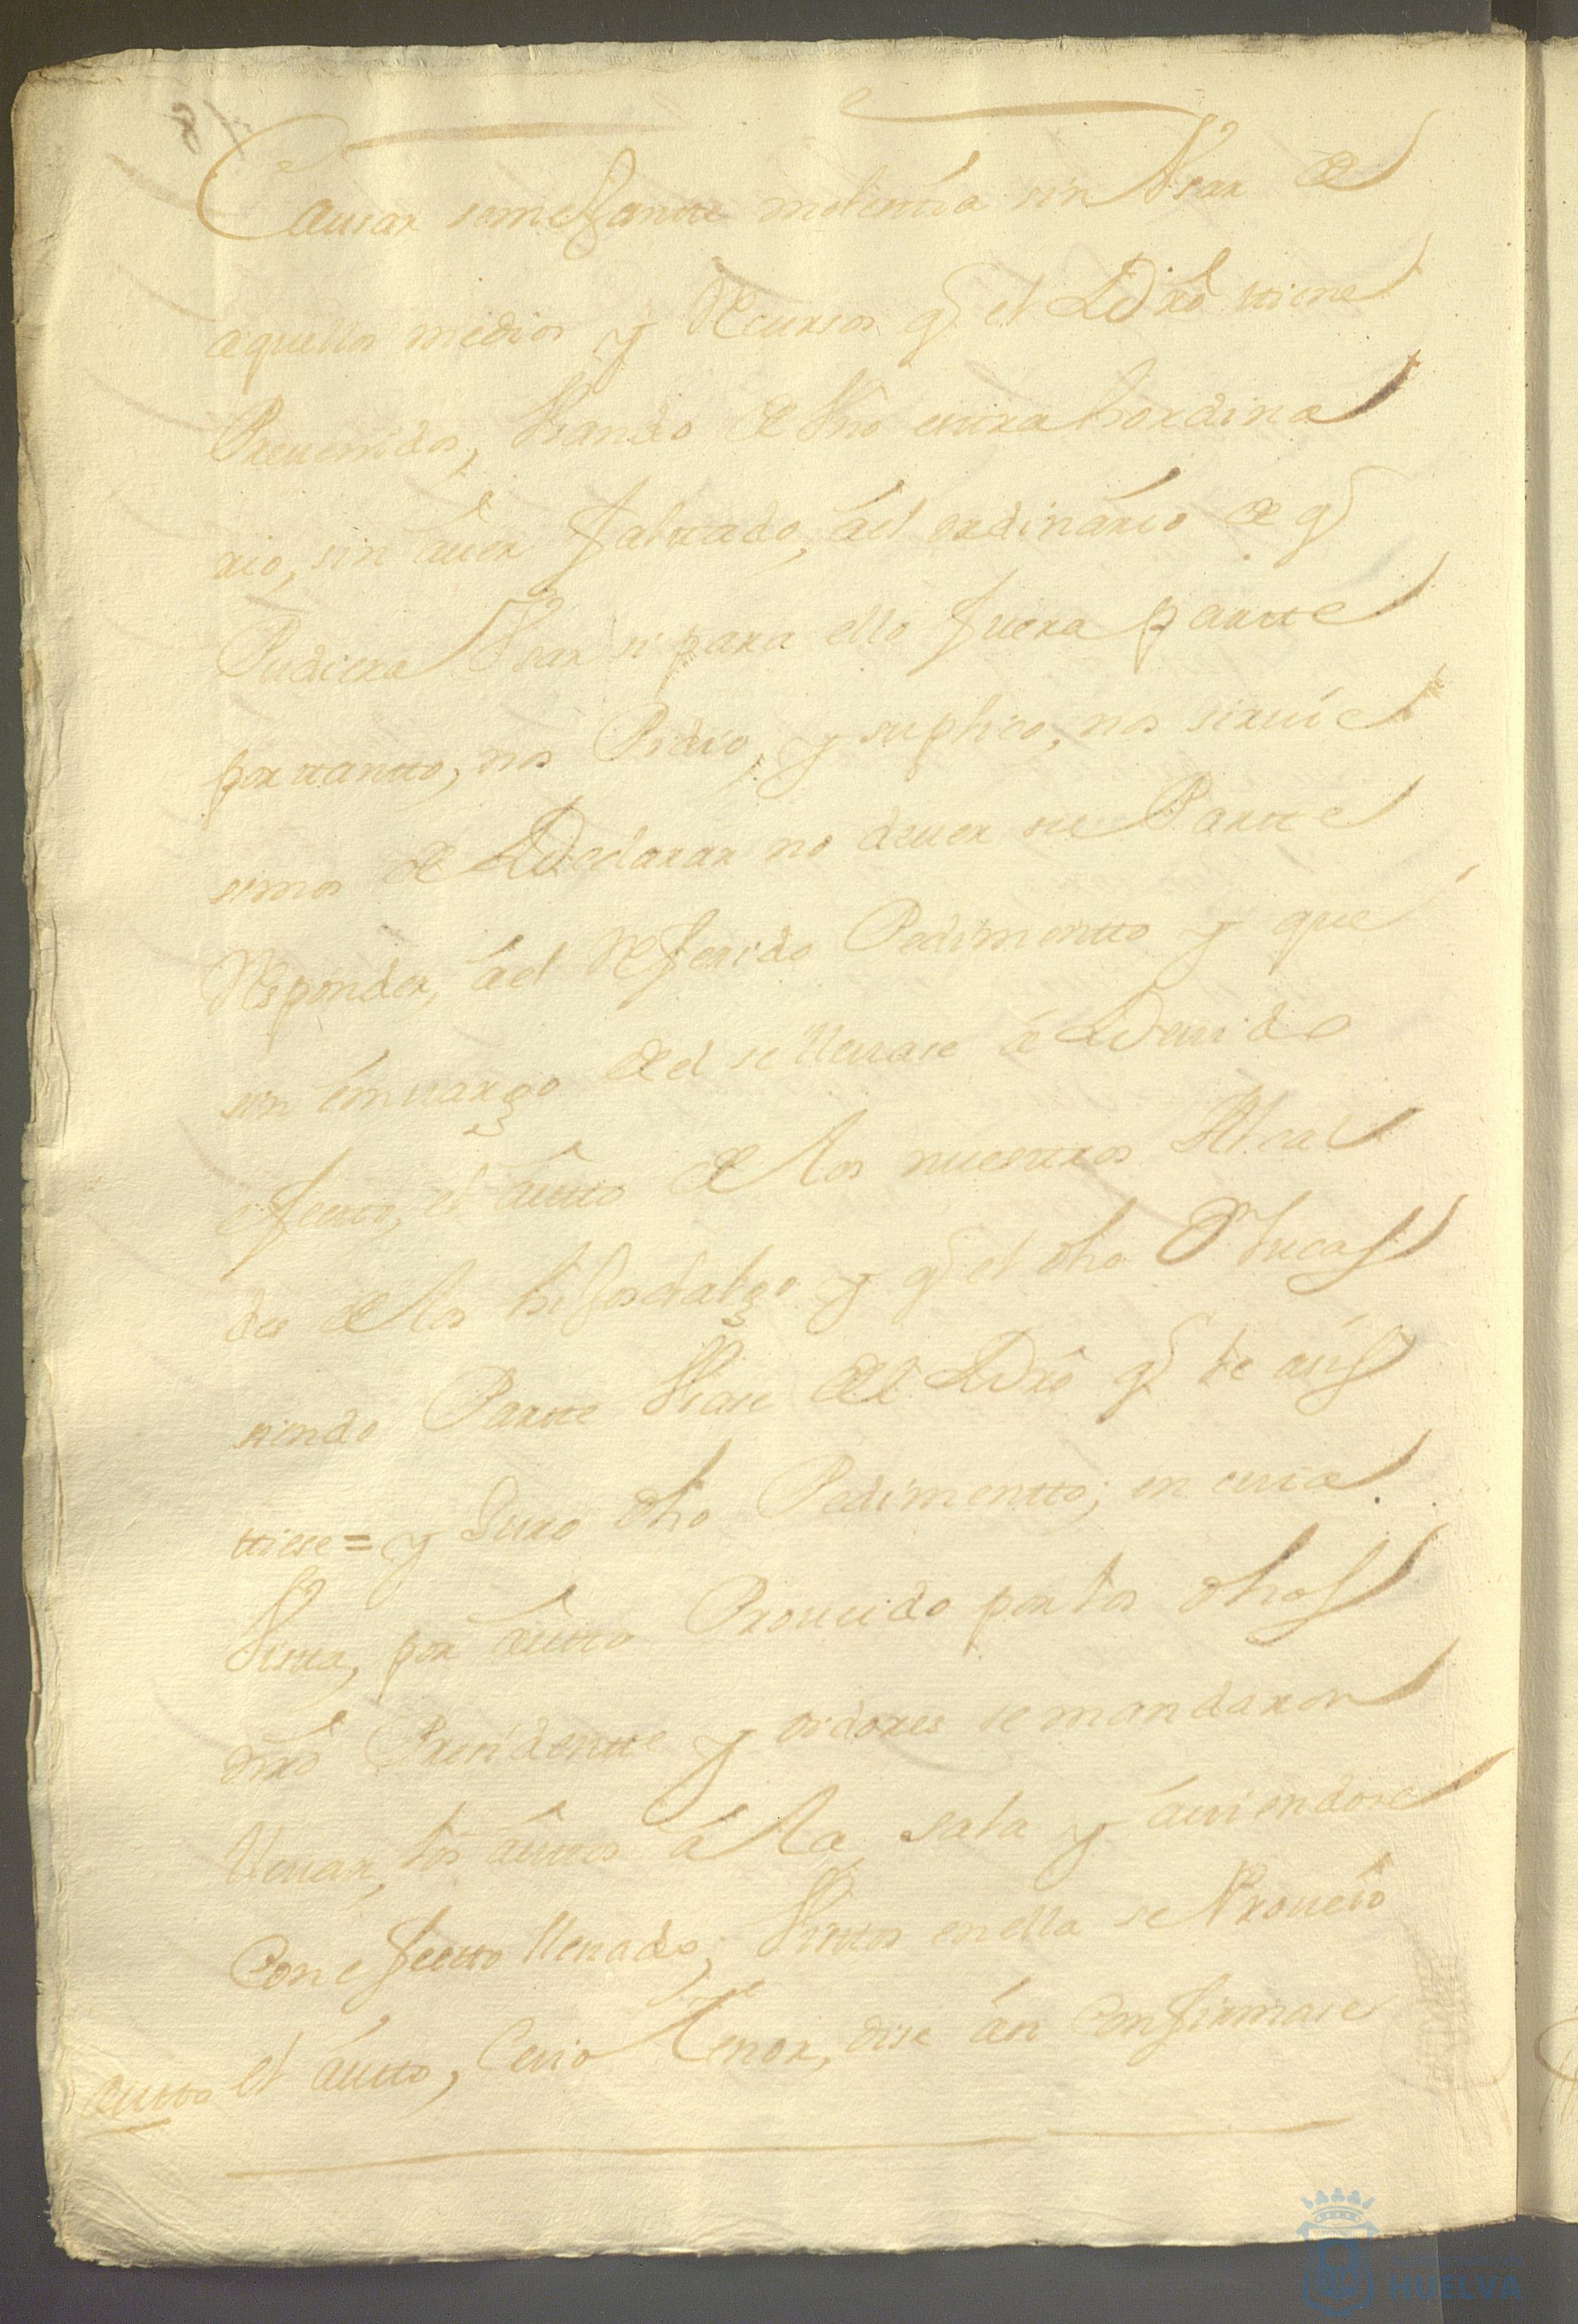 Causar semejantte molesttia sin Vsar de
aquellos medios y Recursos q̃ el Dr̃o ttiene
Preuenidos, Vsando de Vno exttrahordina
rio, sin auer faltado, ael ordinario de q̃
Pudiera Vsar si para ello fuera partte
por ttantto, nos Pidio, y suplico, nos siruie
semos de Declarar no deuer su Partte
Responder, ael Referido Pedimentto y que
sin émuargo de el se lleuase a Deuido
efectto, el autto de los nuesttros Alcal
des de los hijosdalgo y q̃ el dho Dn Lucas
siendo Partte Vsase del Dr̃o q̃ le asis
ttiese = y Juro dho Pedimentto; en cuia
Vistta, por autto Proueido por los dhos
nr̃o Presidentte y oidores se mandaron
lleuar, los auttos á la sala y áuiendose
Con efectto lleuado; Visttos en ella se Proueio
autto el áutto, Cuio tenor, dise ási Confirmase
HUELVA